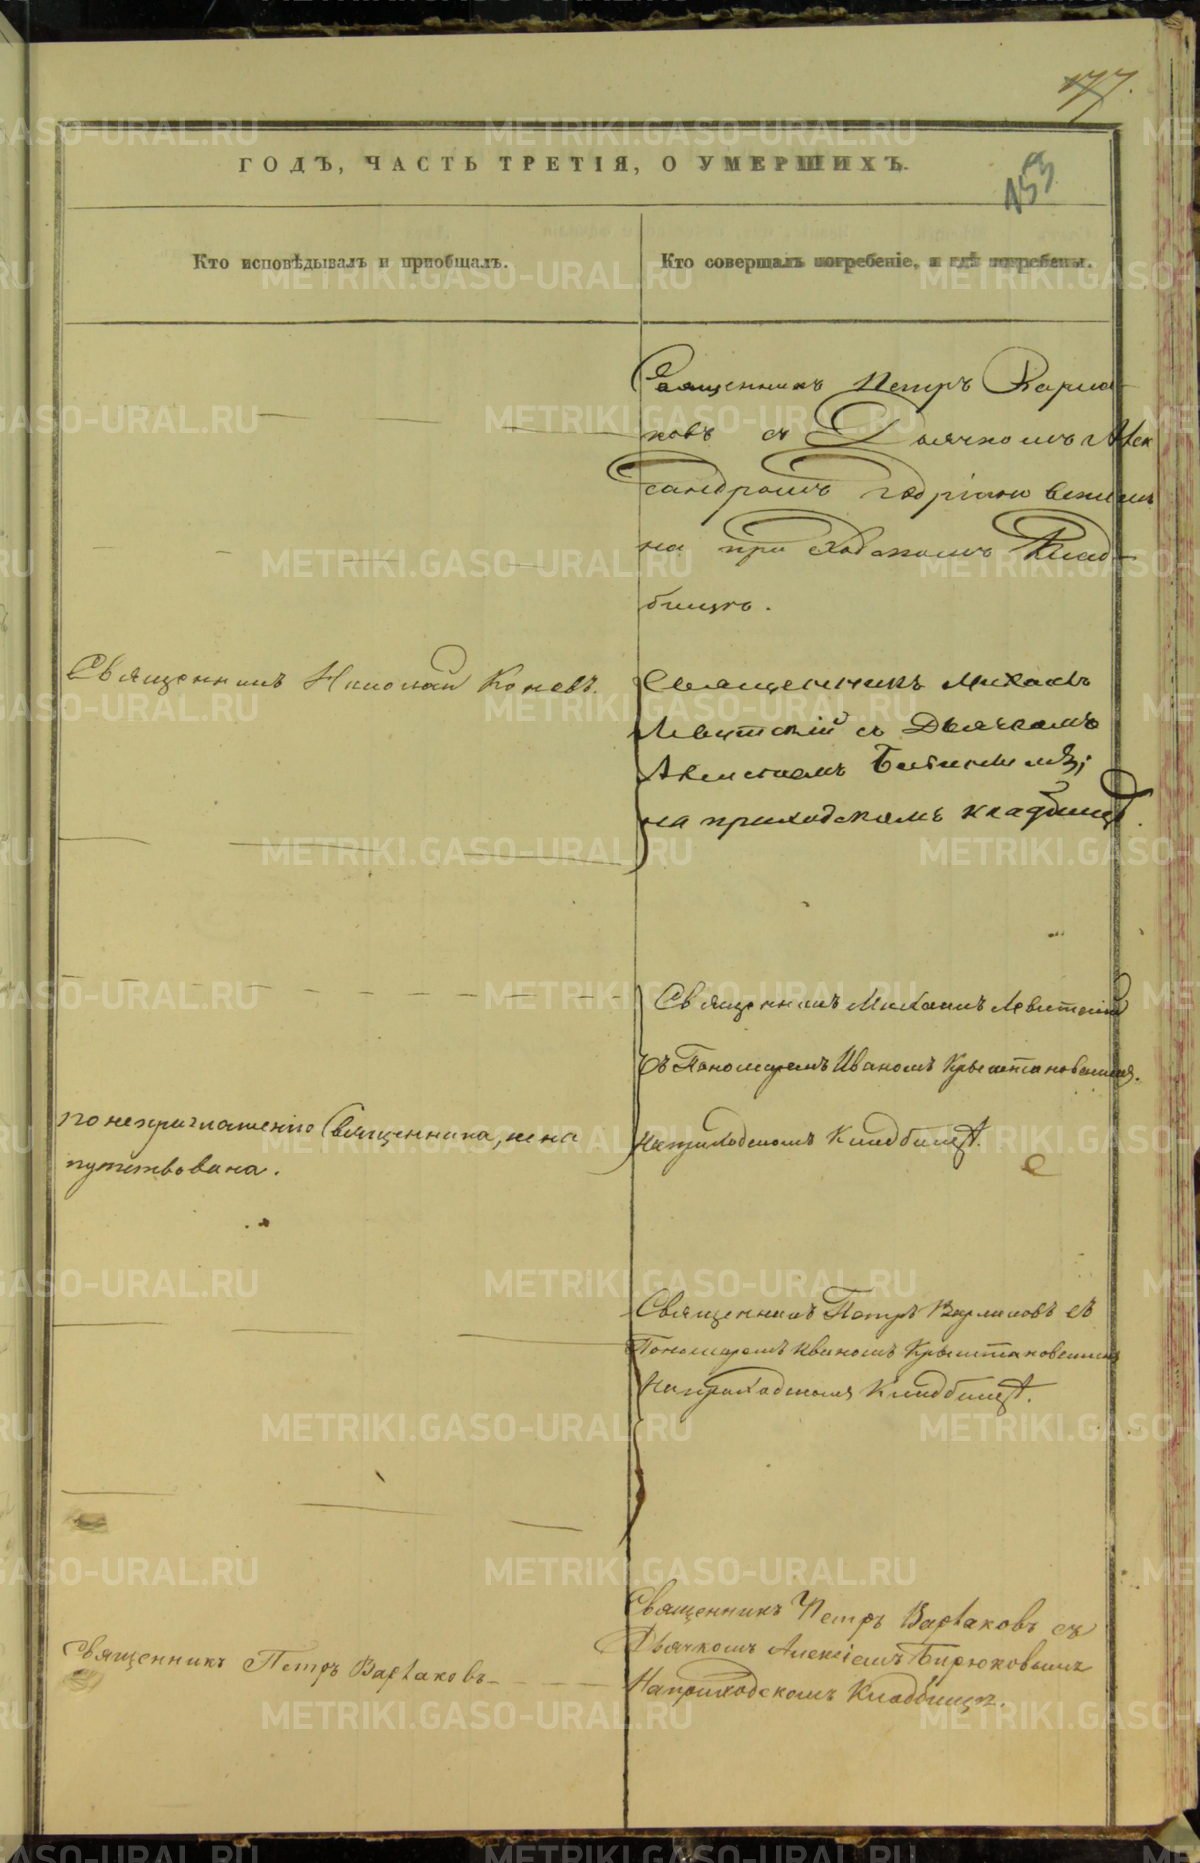 177.
153
ГОДЪ, ЧАСТЬ ТРЕТІЯ, О УМЕРШИХЪ.
Кто исповѣдывалъ и пріобщалъ.
Кто совершалъ погребеніе, и гдѣ погребены.
Священникъ Петръ Варла-
ковъ съ Дьячкомъ Алек
сандромъ
на приходскомъ Клад-
бищѣ.
Священникъ Николай Коневъ.
Священникъ Михаилъ
Левитскій съ Дьячкомъ
на приходскомъ кладбищѣ.
Священникъ Михаилъ Левитскій
Съ Пономаремъ Иваномъ
На приходскомъ Кладбищѣ.
по неприглашенію Священника, не на
путствована.
Священникъ Петръ Варлаковъ съ
Пономаремъ Иваномъ
На приходскомъ Кладбищѣ.
Священникъ Петръ Варлаковъ
Священникъ Петръ Варлаковъ съ
Дьячкомъ Алексіемъ Бирюковымъ
На приходскомъ Кладбищѣ.
METRIKI.GASO-URAL.RU